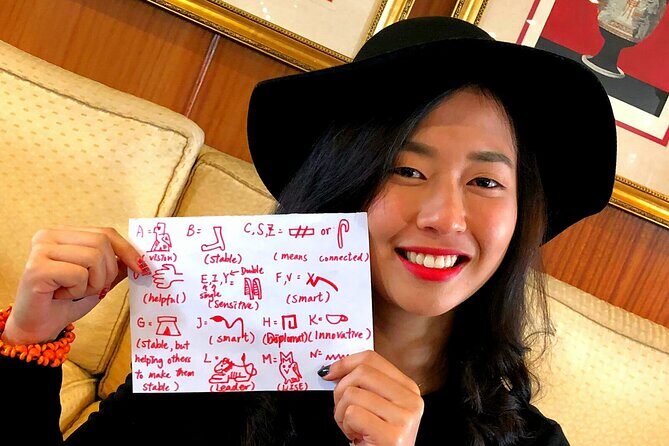 A = B = C,S,Z = or
(vision) (stable) (means connected)
E, I, Y Double F,V =
(helpful) single (Sensitive) (smart)
G = J = H = K =
(stable, but (smart) (Diplomat) (Innovative)
helping others L = M = N =
to make them (Leader)
stable)